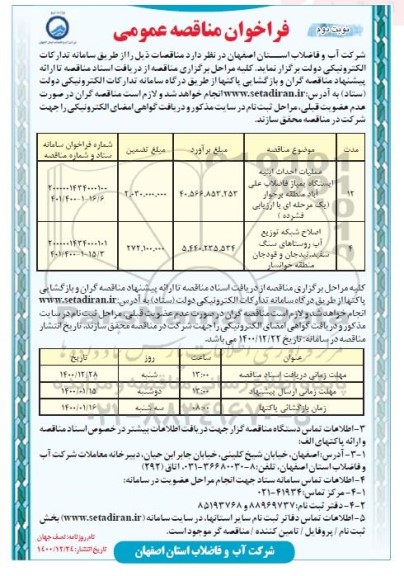 نوبت دوم
فراخوان مناقصه عمومی
شرکت آب و فاضلاب استان اصفهان در نظر دارد مناقصات ذیل را از طریق سامانه تدارکات
الکترونیکی دولت برگزار نماید. کلیه مراحل برگزاری مناقصه از دریافت اسناد مناقصه تا ارائه
پیشنهاد مناقصه گران و بازگشایی پاکتها از طریق درگاه سامانه تدارکات الکترونیکی دولت
(ستاد) به آدرس: www.setadiran.ir انجام خواهد شد و لازم است مناقصه گران در صورت
عدم عضویت قبلی، مراحل ثبت نام در سایت مذکور و دریافت گواهی امضای الکترونیکی را جهت
شرکت در مناقصه محقق سازند.
مدت موضوع مناقصه مبلغ برآورد مبلغ تضمین شماره فراخوان سامانه ستاد و شماره مناقصه
۱۲ عملیات احداث ابنیه ایستگاه پمپاژ فاضلاب علی آباد منطقه برخوار (یک مرحله ای با ارزیابی فشرده) ۴۰،۵۶۶،۸۵۳،۲۵۳ ۲،۰۳۰،۰۰۰،۰۰۰ ۲۰۰۰۰۰۱۴۳۴۰۰۰۱۰۰ ۴۰۱/۴۰۰-۱-۱۶/۶
۴ اصلاح شبکه توزیع آب روستاهای سنگ سفید، تیدجان و قودجان منطقه خوانسار ۵،۴۴۰،۲۳۵،۵۳۴ ۲۷۲،۱۰۰،۰۰۰ ۲۰۰۰۰۰۱۴۳۴۰۰۰۱۰۱ ۴۰۱/۴۰۰-۱-۱۵/۳
کلیه مراحل برگزاری مناقصه از دریافت اسناد مناقصه تا ارائه پیشنهاد مناقصه گران و بازگشایی
پاکتها از طریق درگاه سامانه تدارکات الکترونیکی دولت (ستاد) به آدرس: www.setadiran.ir
انجام خواهد شد و لازم است مناقصه گران در صورت عدم عضویت قبلی، مراحل ثبت نام در سایت
مذکور و دریافت گواهی امضای الکترونیکی را جهت شرکت در مناقصه محقق سازند. تاریخ انتشار
مناقصه در سامانه: تاریخ ۱۴۰۰/۱۲/۲۲ می باشد.
عنوان ساعت روز تاریخ
مهلت زمانی دریافت اسناد مناقصه ۱۳:۰۰ شنبه ۱۴۰۰/۱۲/۲۸
مهلت زمانی ارسال پیشنهاد ۱۳:۰۰ دوشنبه ۱۴۰۰/۰۱/۱۵
زمان بازگشائی پاکتها ۰۸:۰۰ سه شنبه ۱۴۰۰/۰۱/۱۶
۳-اطلاعات تماس دستگاه مناقصه گزار جهت دریافت اطلاعات بیشتر در خصوص اسناد مناقصه
و ارائه پاکتهای الف:
۱-۳- آدرس: اصفهان، خیابان شیخ کلینی، خیابان جابر ابن حیان، دبیرخانه معاملات شرکت آب
و فاضلاب استان اصفهان، تلفن: ۸-۳۶۶۸۰۰۳۰-۰۳۱ (اتاق ۲۹۲)
۴-اطلاعات تماس سامانه ستاد جهت انجام مراحل عضویت در سامانه:
۴-۱- مرکز تماس: ۴۱۹۳۴-۰۲۱
۴-۲- دفتر ثبت نام: ۸۸۹۶۹۷۳۷ و ۸۵۱۹۳۷۶۸
۵-اطلاعات تماس دفاتر ثبت نام سایر استانها، در سایت سامانه (www.setadiran.ir) بخش
ثبت نام / پروفایل / تامین کننده / مناقصه گر موجود است.
نام روزنامه: نصف جهان
تاریخ انتشار: ۱۴۰۰/۱۲/۲۴
شرکت آب و فاضلاب استان اصفهان